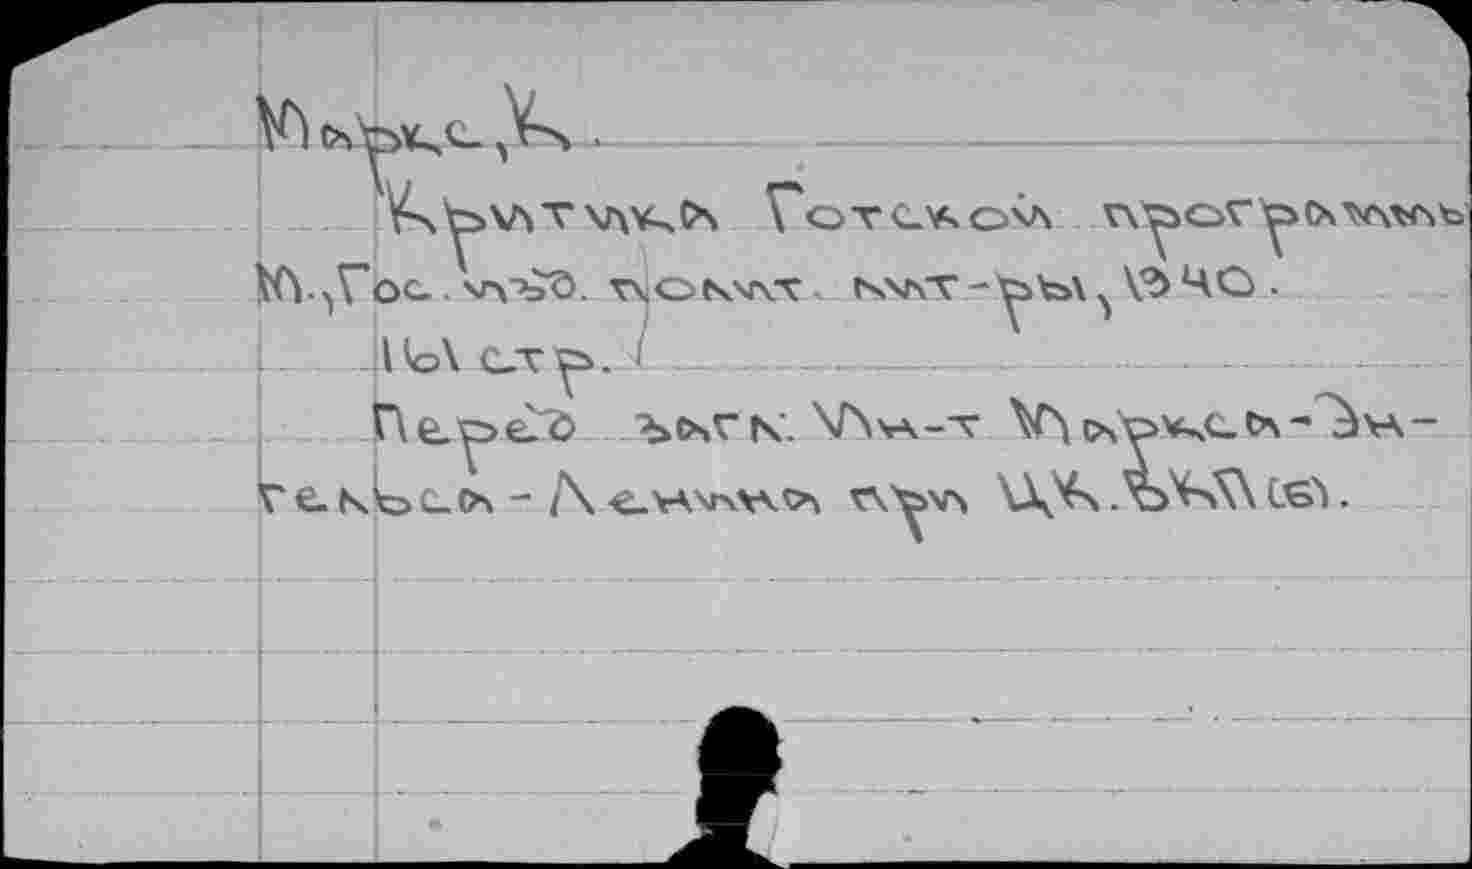 Маркс, К.
Критика Готской программы
М., Гос. изд. полит. лит-ры, 1940.
161 стр.
Перед загл: Ин-т Маркса-Эн-
гельса-Ленина при ЦК.ВКП(б).